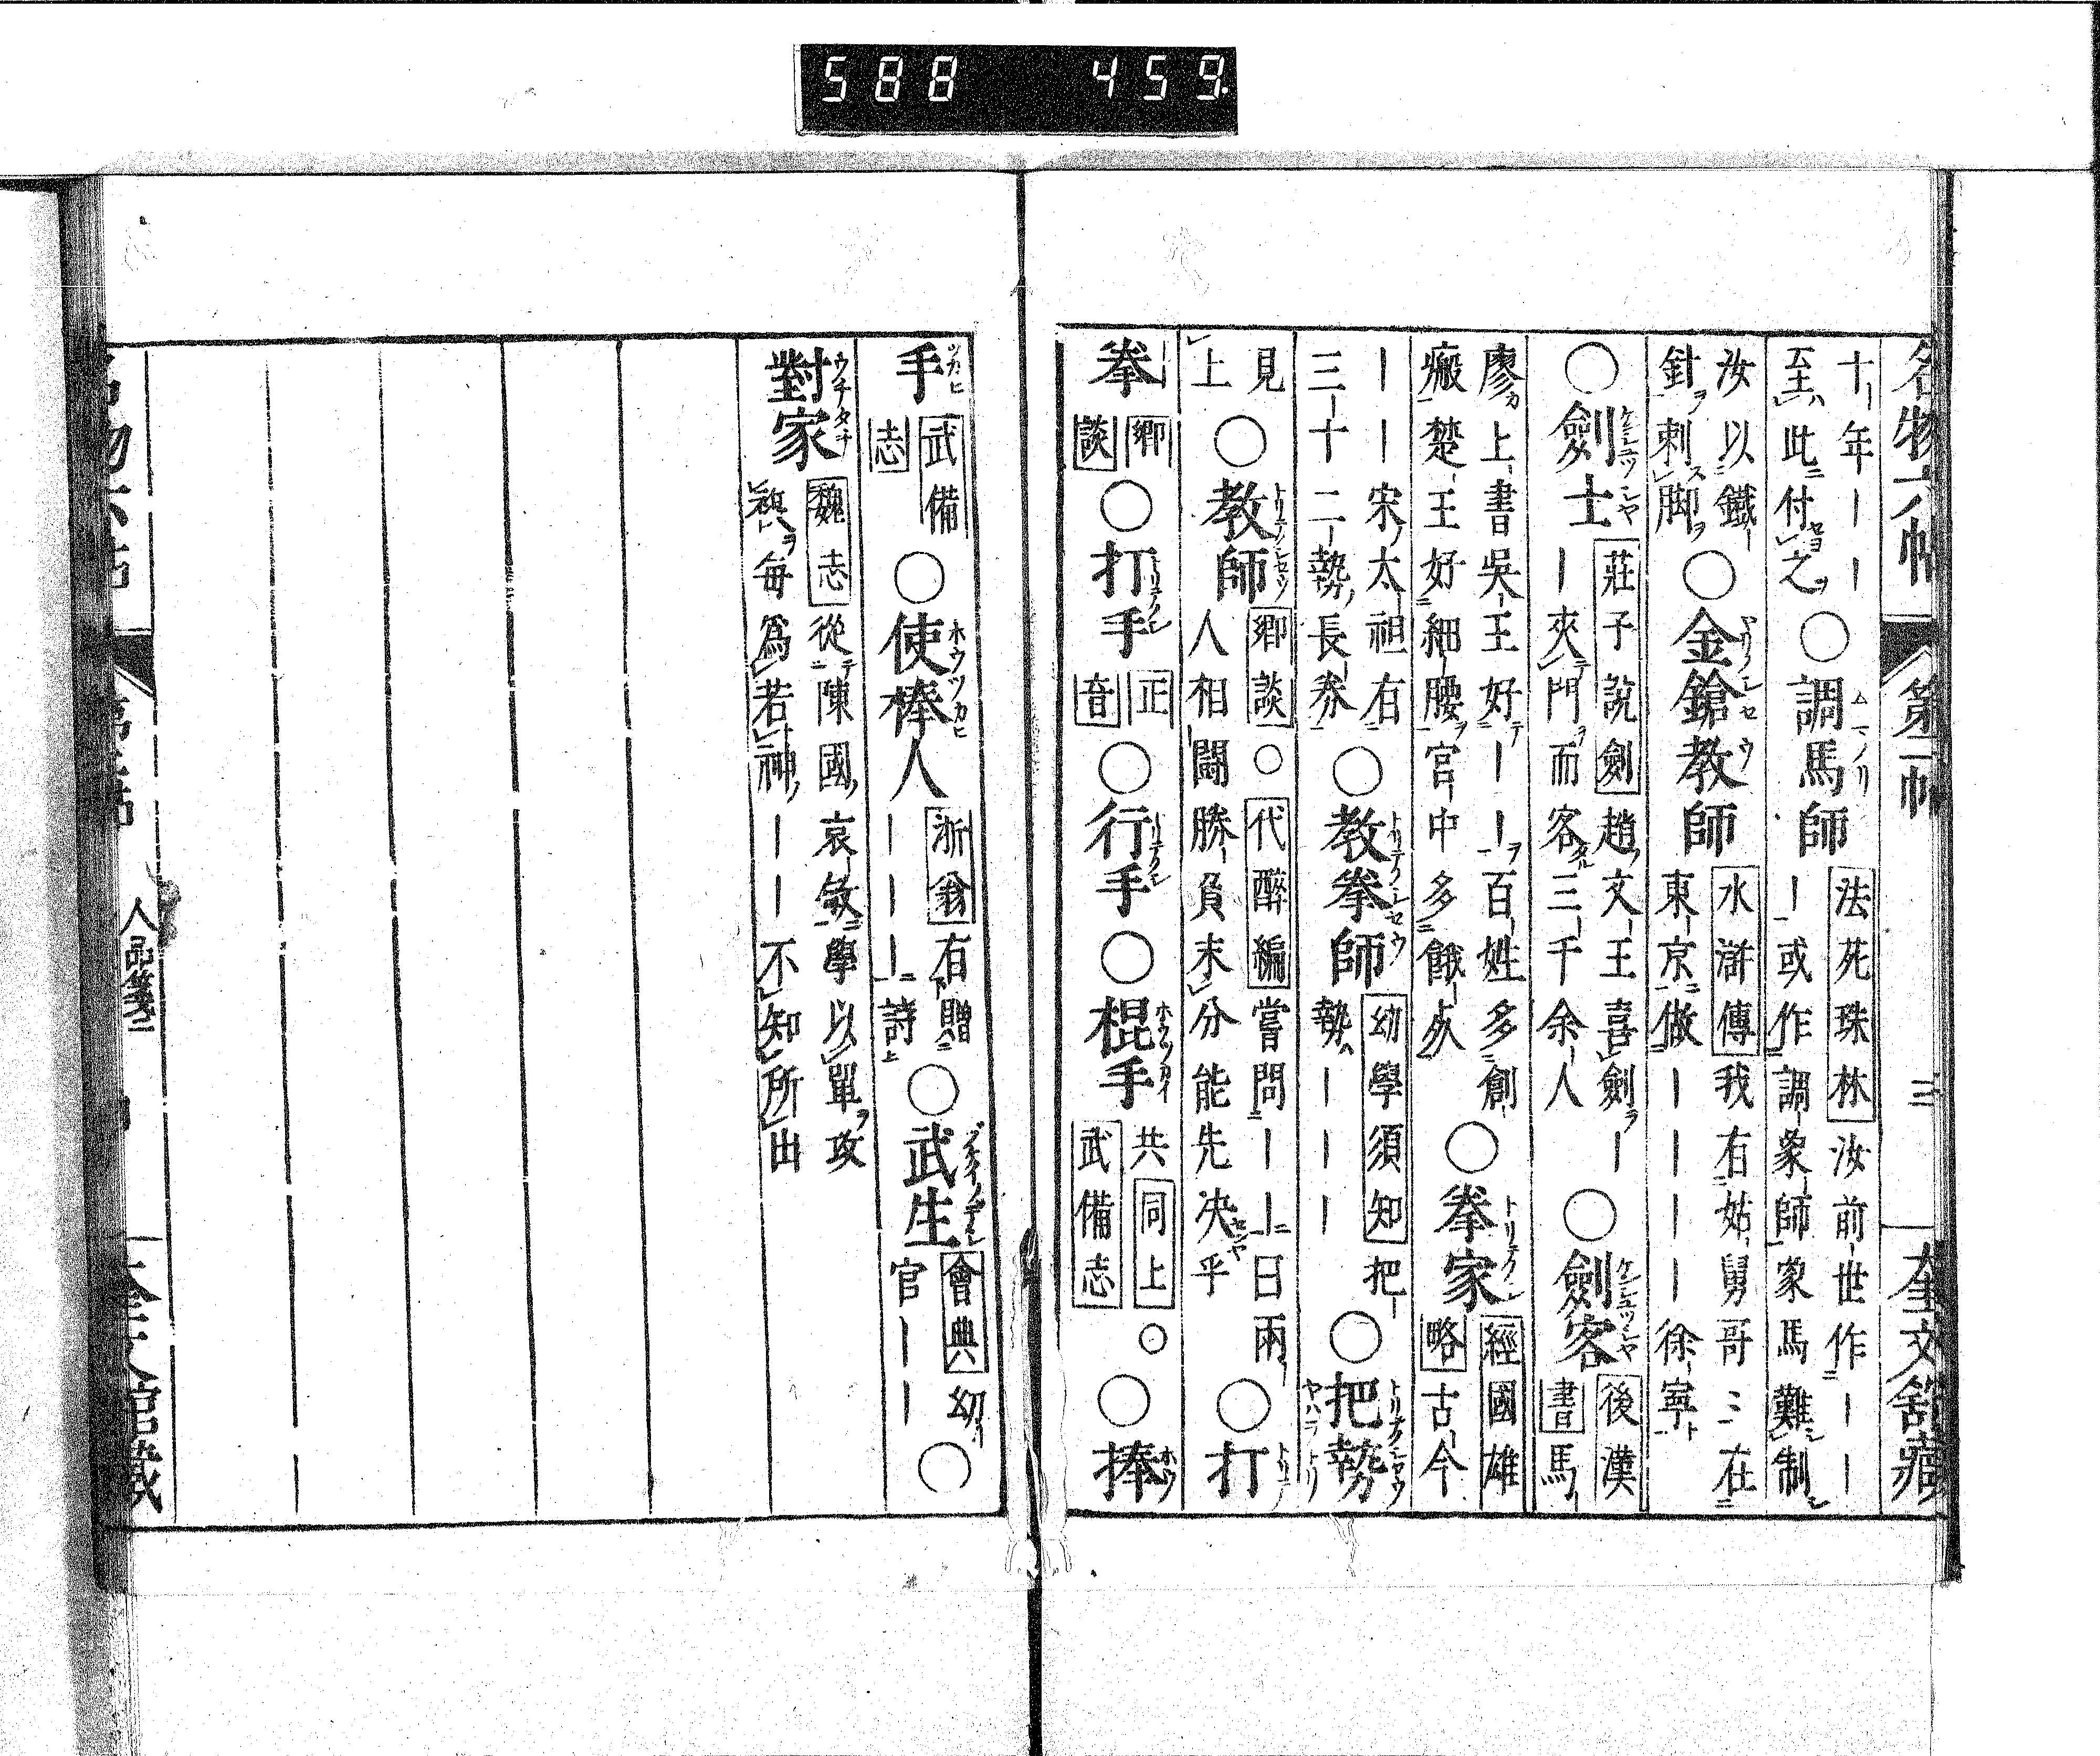 588 459.
名物六帖 第二帖 三 奎文館藏
十年｜｜
至此付之〇調馬師
法苑珠林汝前世作｜｜
｜或作調象師象馬難制
汝以鐵
針刺脚〇金鎗教師
水滸傳我有姑舅哥〻在
東京做｜｜｜｜徐寧
〇劍士
莊子說劍趙文王喜劍｜
｜夾門而客三千余人
〇劍客
後漢
書馬
廖上書吳王好｜｜百姓多創
瘢楚王好細腰宮中多餓
〇拳家
經國雄
略古今
｜｜宋太祖有
三十二勢長拳
〇教拳師
幼學須知把
勢｜｜｜
〇把勢
見
上〇教師
鄉談〇代醉編嘗問｜｜曰兩
人相鬪勝負未分能先决乎
〇打
拳
鄉
談〇打手
正
音〇行手〇棍手
共同上〇
武備志
〇捧
手
武備
志〇使棒人
浙翁有贈
｜｜｜詩
〇武生
會典幼
官｜｜
〇
對家
魏志從陳國袁敏學以單攻
複每爲若神｜｜不知所出
人品箋二